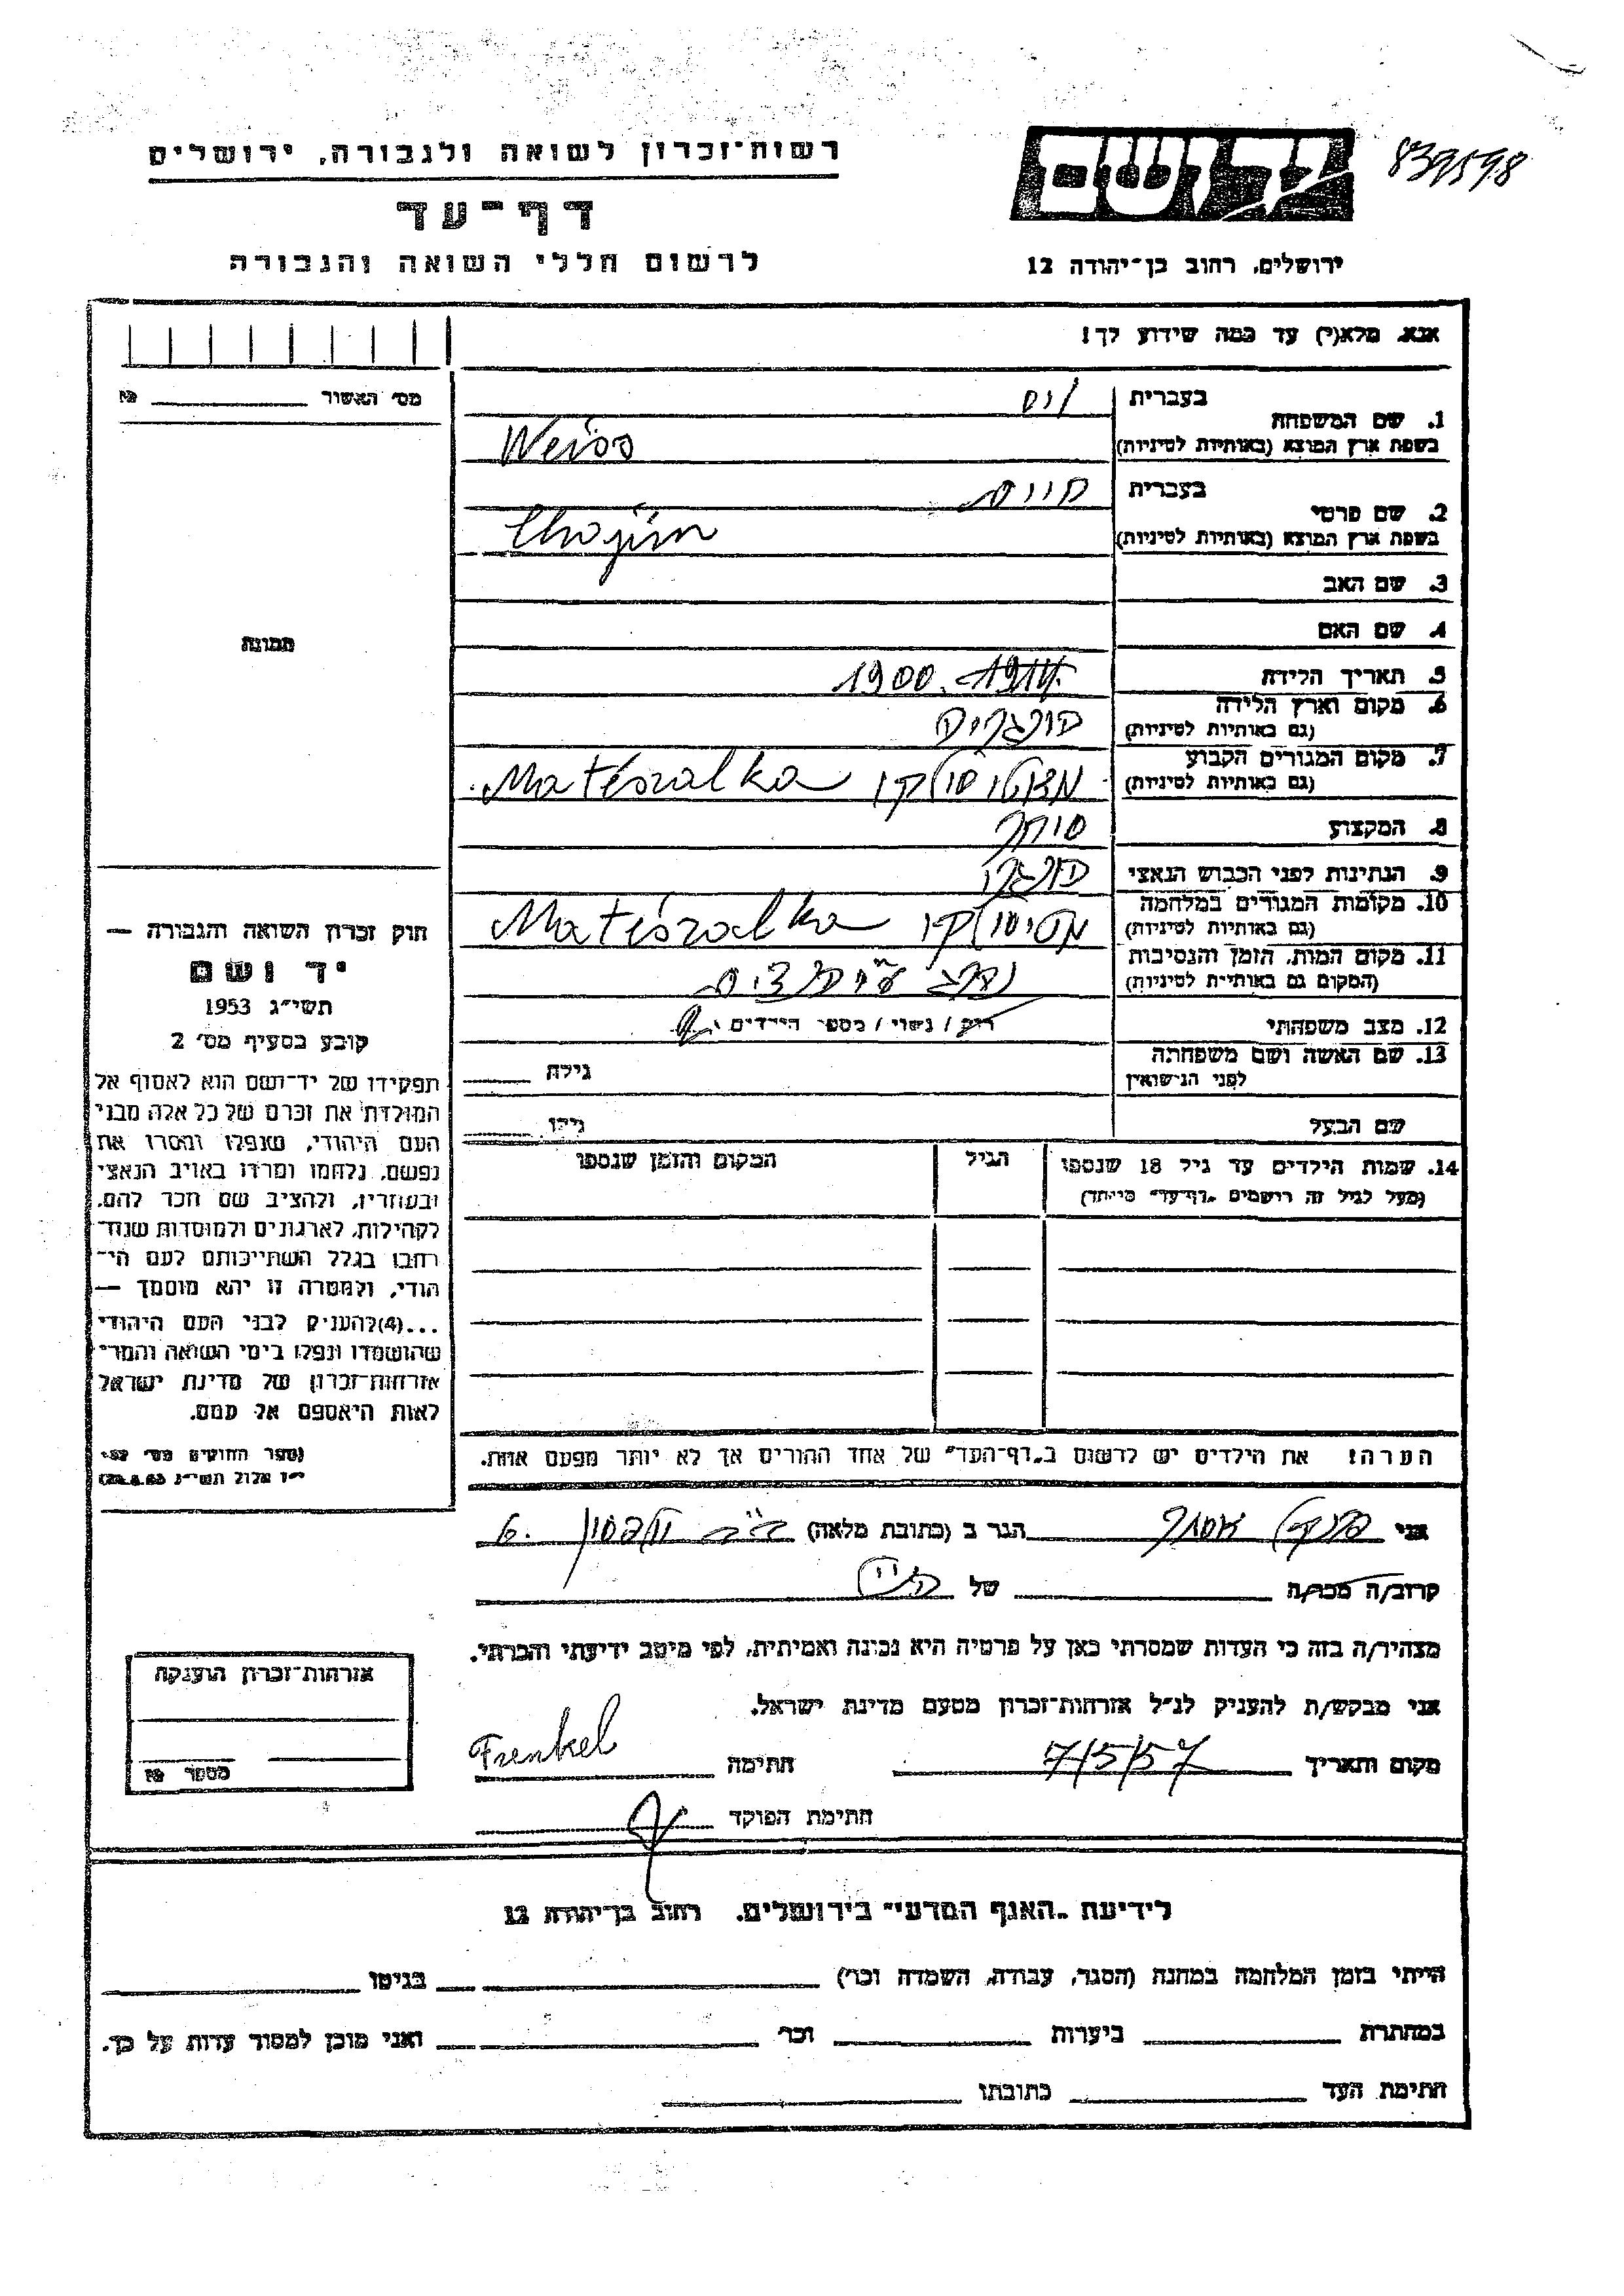 רשות־זכרון לשואה ולגבורה, ירושלים
דף־עד
לרשום חללי השואה והגבורה
יד ושם
839598
ירושלים, רחוב בן־יהודה 12
אנא, מלא(י) עד כמה שידוע לך!
מס׳ האשור № 
1. שם המשפחה בעברית
בשפת ארץ המוצא (באותיות לטיניות) Weiss
2. שם פרטי בעברית חיים
בשפת ארץ המוצא (באותיות לטיניות) Chajim
3. שם האב
4. שם האם
5. תאריך הלידה 1900
6. מקום וארץ הלידה
(גם באותיות לטיניות)
7. מקום המגורים הקבוע Matészalka
(גם באותיות לטיניות)
8. המקצוע סוחר
9. הנתינות לפני הכבוש הנאצי הונגרי
10. מקומות המגורים במלחמה Matészalka
(גם באותיות לטיניות)
11. מקום המות, הזמן והנסיבות נהרג ע״י
(המקום גם באותיות לטיניות)
12. מצב משפחתי רוק / נשוי / מספר הילדים
13. שם האשה ושם משפחתה גילה
לפני הנישואין
שם הבעל גילו
14. שמות הילדים עד גיל 18 שנספו הגיל המקום והזמן שנספו
(מעל לגיל זה רושמים „דף־עד״ מיוחד)
הערה! את הילדים יש לרשום ב„דף־העד״ של אחד ההורים אך לא יותר מפעם אחת.
תמונה
חוק זכרון השואה והגבורה —
יד ושם
תשי״ג 1953
קובע בסעיף מס׳ 2
תפקידו של יד־ושם הוא לאסוף אל
המולדת את זכרם של כל אלה מבני
העם היהודי, שנפלו ומסרו את
נפשם, נלחמו ומרדו באויב הנאצי
ובעוזריו, ולהציב שם וזכר להם,
לקהילות, לארגונים ולמוסדות שנח־
רבו בגלל השתייכותם לעם הי־
הודי, ולמטרה זו יהא מוסמך —
...(4)להעניק לבני העם היהודי
שהושמדו ונפלו בימי השואה והמרי
אזרחות־זכרון של מדינת ישראל
לאות היאספם אל עמם.
(ספר החוקים מס׳
אני פרנקל אסתר הגר ב (כתובת מלאה)
קרוב/ה מכר/ה של
מצהיר/ה בזה כי העדות שמסרתי כאן על פרטיה היא נכונה ואמיתית, לפי מיטב ידיעתי והכרתי.
אני מבקש/ת להעניק לנ״ל אזרחות־זכרון מטעם מדינת ישראל.
מקום ותאריך 7/5/57 חתימה Frenkel
חתימת הפוקד
אזרחות־זכרון הוענקה
מספר №
לידיעת „האגף המדעי״ בירושלים, רחוב בן־יהודה 12
הייתי בזמן המלחמה במחנה (הסגר, עבודה, השמדה וכו׳) בגיטו
במחתרת ביערות וכו׳ ואני מוכן למסור עדות על כך.
חתימת העד כתובתו